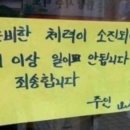 비한 체력이 소진되
이상 일이 안됩니다
죄송합니다
-주인